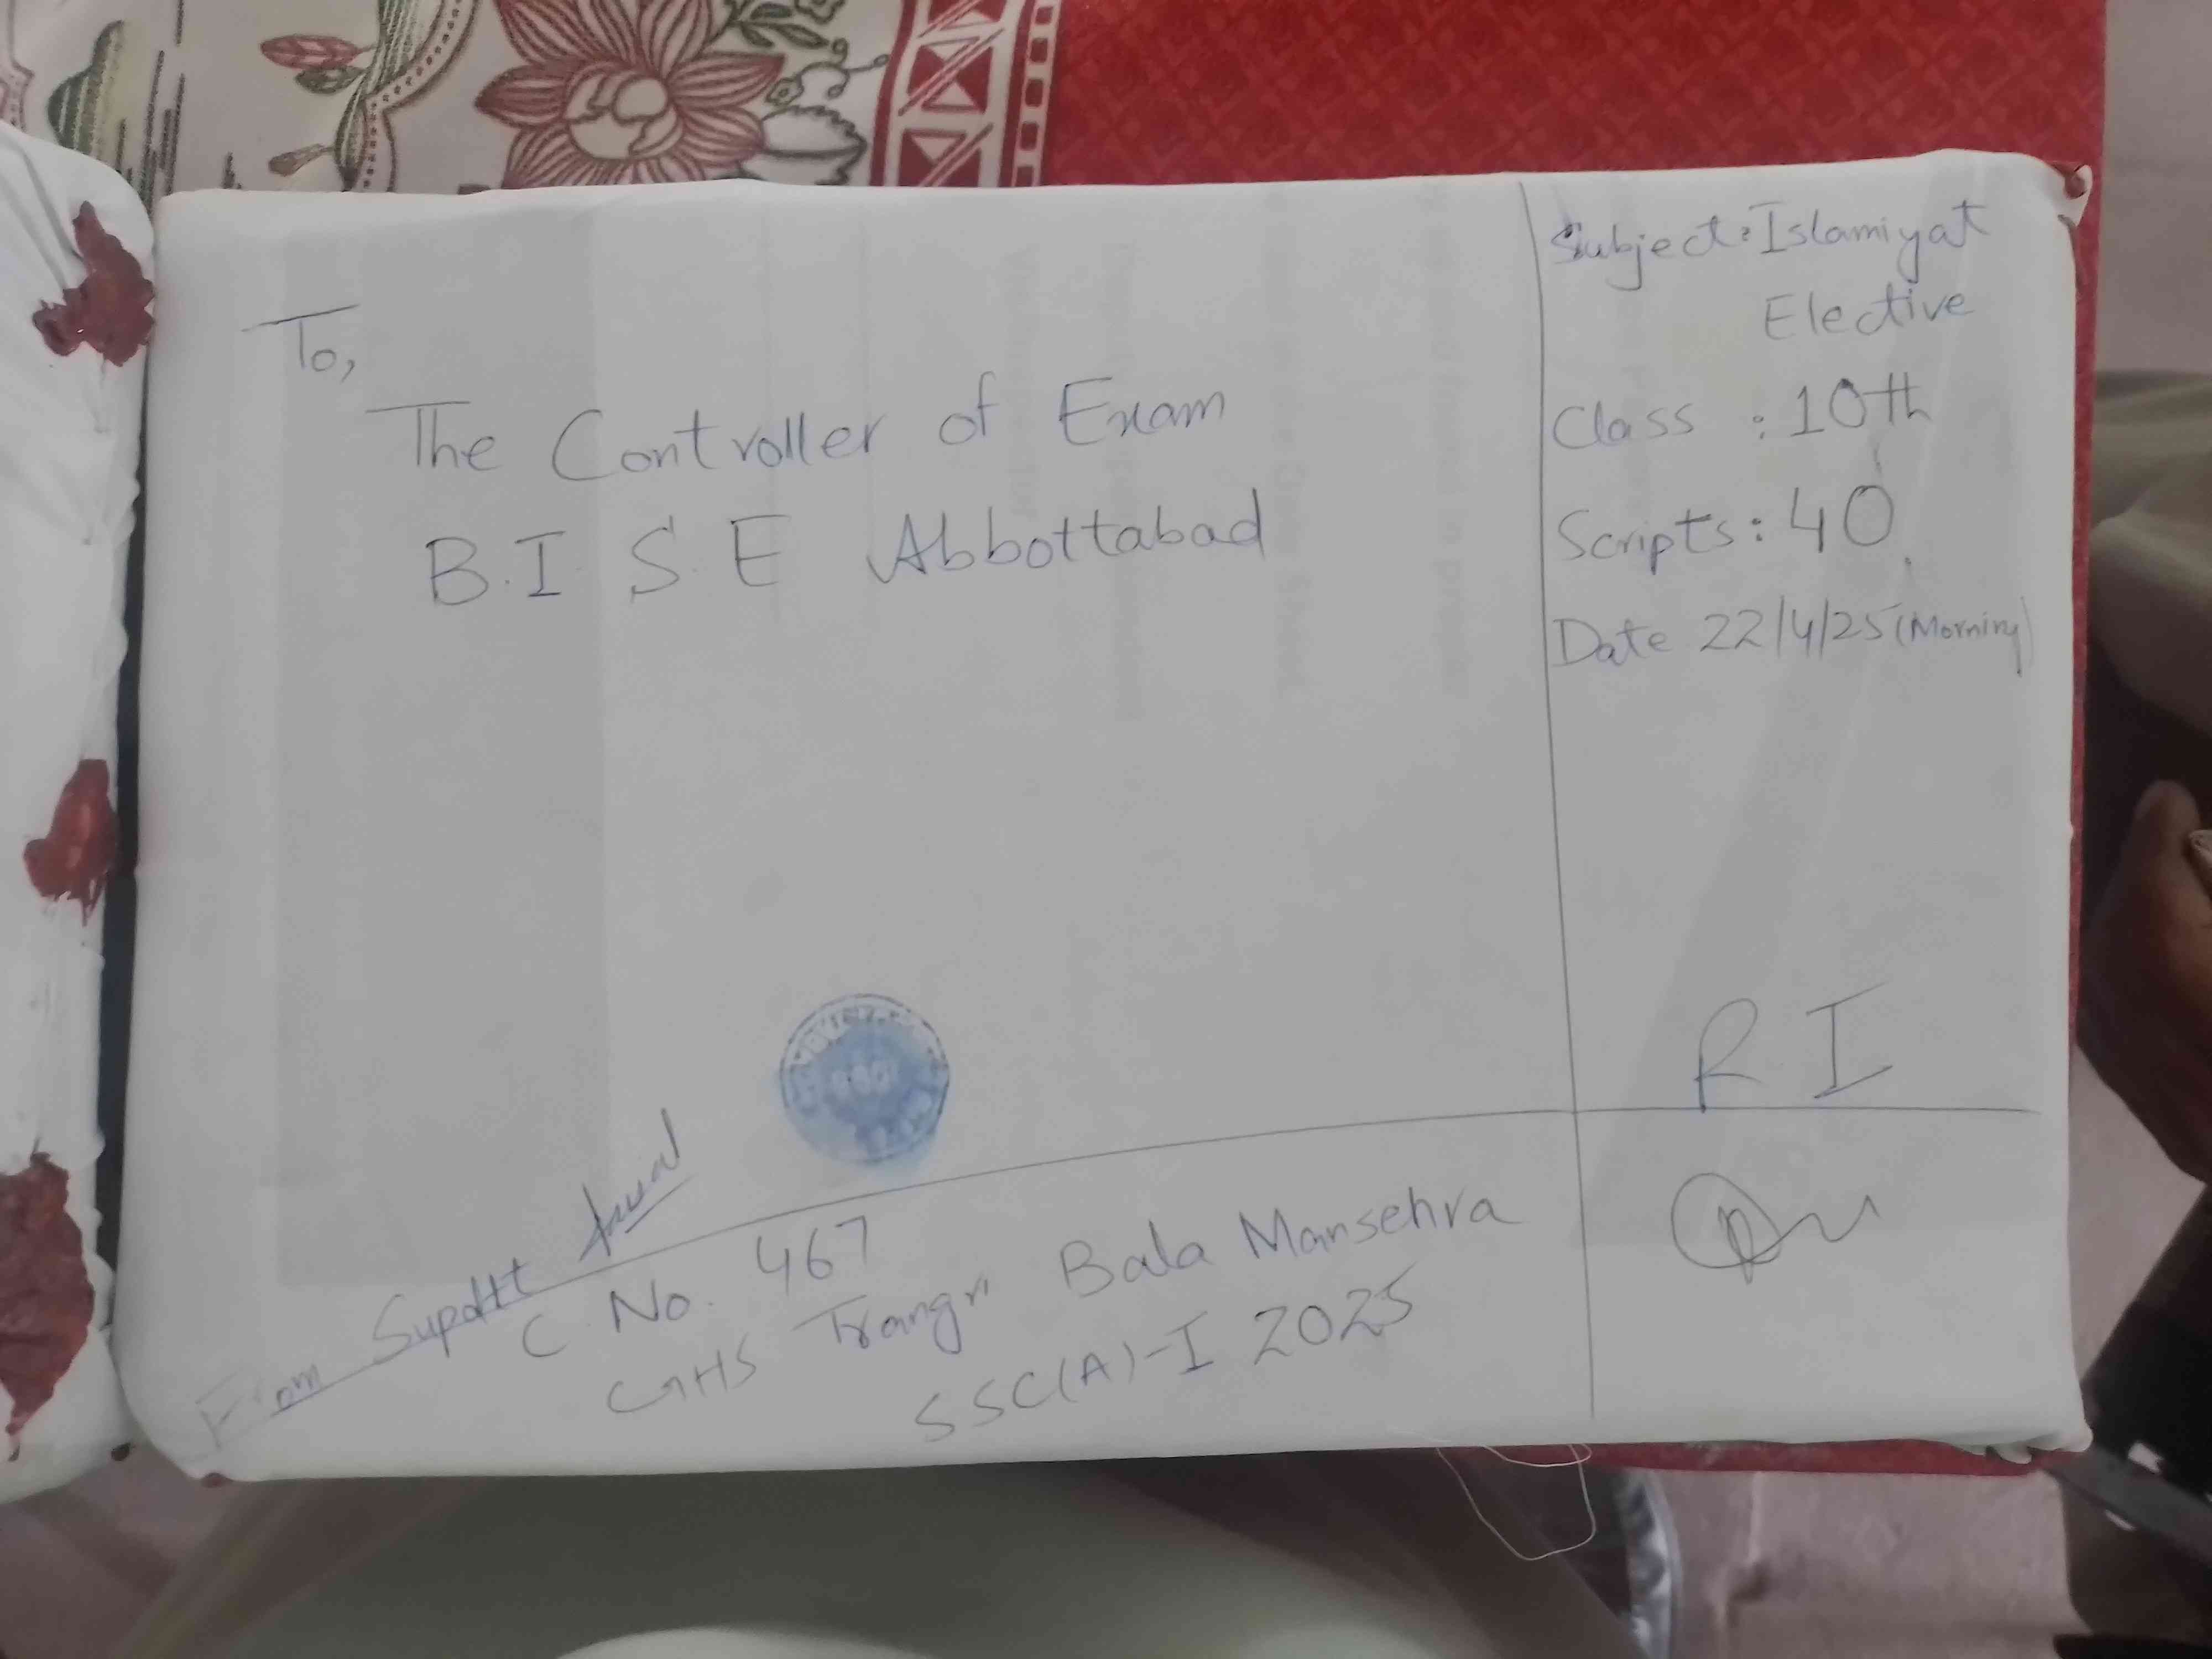 To,
The Controller of Exam
B.I.S.E Abbottabad
Subject: Islamiyat
Elective
Class : 10th
Scripts: 40
Date 22/4/25 (Morning)
R I
From Supdtt
C No. 467
GHS Trangri Bala Mansehra
SSC(A)-I 2025